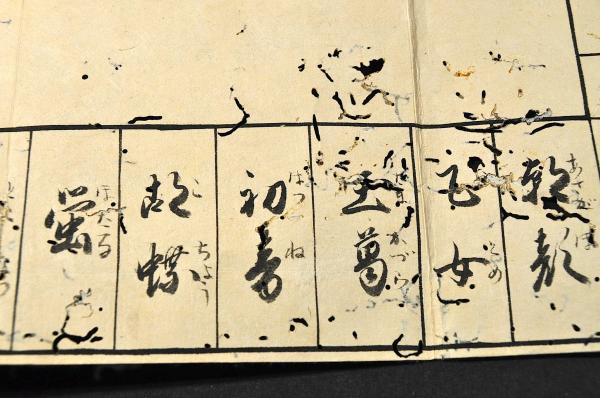 朝顔 あさがほ
乙女 とめ
玉葛 たまかづら
初音 はつね
胡蝶 こちょう
蛍 ほたる